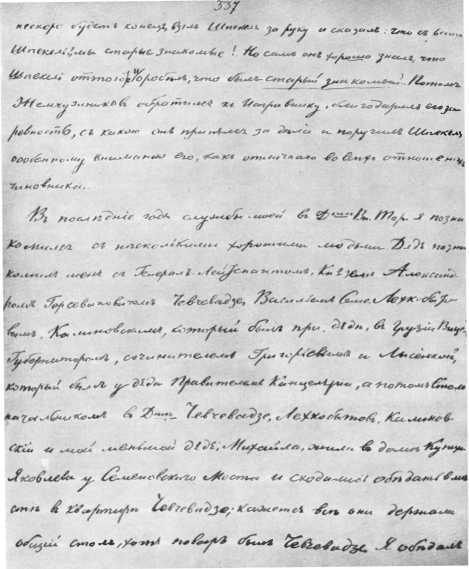 337
нескоро будетъ конецъ, взялъ Шпекеля за руку и сказалъ: что съ
Шпекелемъ мы старые знакомые! Но самъ онъ хорошо зналъ, что
Шпекель оттого и что былъ старый знакомый. Потомъ
Жемчужниковъ обратился къ благодарилъ его за
ревность, съ какою онъ принялся за дѣла и поручилъ
особенному вниманію его, какъ отличнаго во всѣхъ отноше
чиновника.
Въ послѣдніе годы службы моей въ я позна
комился съ нѣсколькими хорошими людьми. Дѣдъ позна
комилъ меня съ Генералъ Лейтенантомъ, Княземъ Александ
ромъ Чевчевадзе, Васильемъ
Калиновскимъ, который былъ при дѣдѣ, въ Грузіи Вице
Губернаторомъ, сочинителемъ Григорьевымъ и Лисенкой,
который былъ у дѣда Правителемъ Канцеляріи, а потомъ
начальникомъ въ Чевчевадзе, Калинов
скій и мой меньшой дѣдъ, Михайла, жили въ домѣ Купца
Яковлева у Семеновскаго Моста и сходились обѣдать вмѣ
стѣ въ квартиру Чевчевадзе; кажется всѣ они держали
общій столъ, хотя поваръ былъ Чевчевадзе. Я обѣдалъ